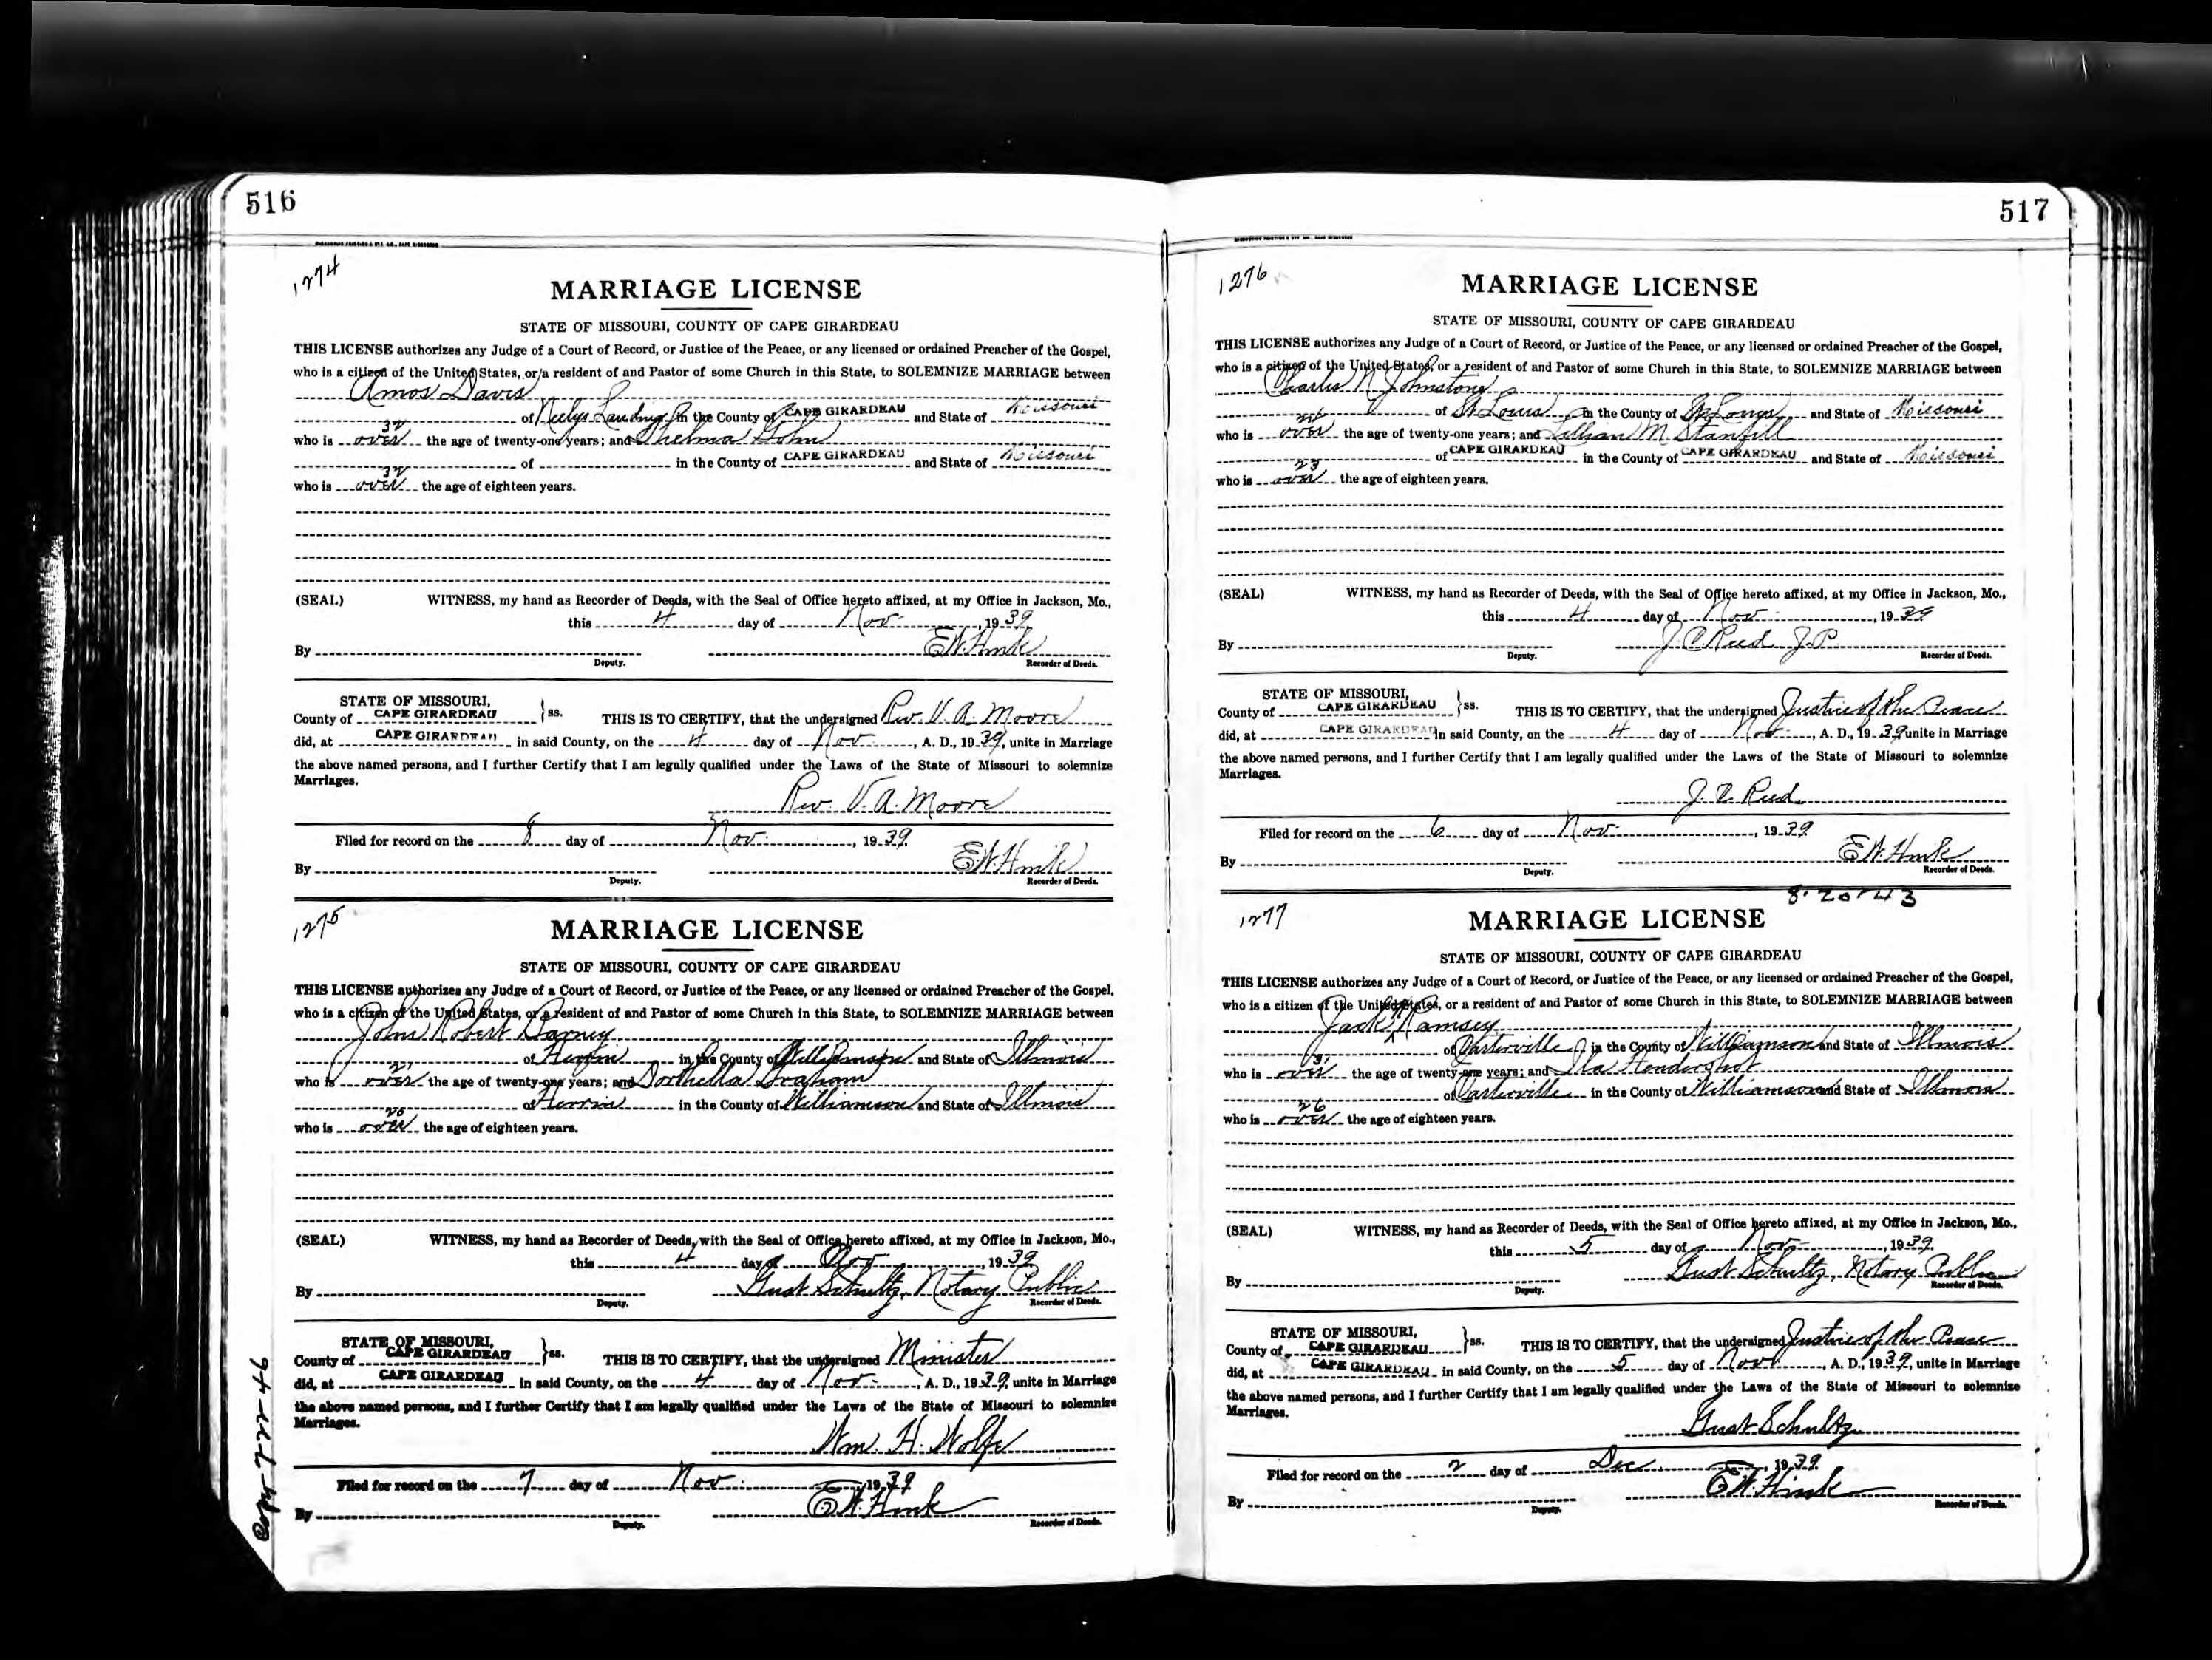 516
1274
MARRIAGE LICENSE
STATE OF MISSOURI, COUNTY OF CAPE GIRARDEAU
THIS LICENSE authorizes any Judge of a Court of Record, or Justice of the Peace, or any licensed or ordained Preacher of the Gospel,
who is a citizen of the United States, or a resident of and Pastor of some Church in this State, to SOLEMNIZE MARRIAGE between
Amos Davis
of Neelys Landing in the County of CAPE GIRARDEAU and State of Missouri
32
who is over the age of twenty-one years; and Thelma
of in the County of CAPE GIRARDEAU and State of Missouri
32
who is over the age of eighteen years.
(SEAL) WITNESS, my hand as Recorder of Deeds, with the Seal of Office hereto affixed, at my Office in Jackson, Mo.,
this 4 day of Nov. , 19 39
E.W. Hink
By Deputy. Recorder of Deeds.
STATE OF MISSOURI,
County of CAPE GIRARDEAU } ss. THIS IS TO CERTIFY, that the undersigned Rev. V. A. Moore
did, at CAPE GIRARDEAU in said County, on the 4 day of Nov. , A. D., 19 39, unite in Marriage
the above named persons, and I further Certify that I am legally qualified under the Laws of the State of Missouri to solemnize
Marriages.
Rev. V. A. Moore
Filed for record on the 8 day of Nov. , 19 39
E.W. Hink
By Deputy. Recorder of Deeds.
1275
MARRIAGE LICENSE
STATE OF MISSOURI, COUNTY OF CAPE GIRARDEAU
THIS LICENSE authorizes any Judge of a Court of Record, or Justice of the Peace, or any licensed or ordained Preacher of the Gospel,
who is a citizen of the United States, or a resident of and Pastor of some Church in this State, to SOLEMNIZE MARRIAGE between
John Robert Darney
of Herrin in the County of Williamson and State of Illinois
21
who is over the age of twenty-one years; and Dorthella Graham
of Herrin in the County of Williamson and State of Illinois
20
who is over the age of eighteen years.
(SEAL) WITNESS, my hand as Recorder of Deeds, with the Seal of Office hereto affixed, at my Office in Jackson, Mo.,
this 4 day of Nov , 19 39
Gust Schultz, Notary Public
By Deputy. Recorder of Deeds.
STATE OF MISSOURI,
County of CAPE GIRARDEAU } ss. THIS IS TO CERTIFY, that the undersigned Minister
did, at CAPE GIRARDEAU in said County, on the 4 day of Nov. , A. D., 19 39, unite in Marriage
the above named persons, and I further Certify that I am legally qualified under the Laws of the State of Missouri to solemnize
Marriages.
Wm. H. Wolfe
Filed for record on the 7 day of Nov. 19 39
E.W. Hink
By Deputy. Recorder of Deeds.
Copy 7-22-46
517
1276
MARRIAGE LICENSE
STATE OF MISSOURI, COUNTY OF CAPE GIRARDEAU
THIS LICENSE authorizes any Judge of a Court of Record, or Justice of the Peace, or any licensed or ordained Preacher of the Gospel,
who is a citizen of the United States, or a resident of and Pastor of some Church in this State, to SOLEMNIZE MARRIAGE between
Charles N. Johnstone
of St. Louis in the County of St. Louis and State of Missouri
who is over the age of twenty-one years; and Lillian M. Stanfill
of CAPE GIRARDEAU in the County of CAPE GIRARDEAU and State of Missouri
23
who is over the age of eighteen years.
(SEAL) WITNESS, my hand as Recorder of Deeds, with the Seal of Office hereto affixed, at my Office in Jackson, Mo.,
this 4 day of Nov. , 19 39
J. C. Reed J.P.
By Deputy. Recorder of Deeds.
STATE OF MISSOURI,
County of CAPE GIRARDEAU } ss. THIS IS TO CERTIFY, that the undersigned Justice of the Peace
did, at CAPE GIRARDEAU in said County, on the 4 day of Nov. , A. D., 19 39 unite in Marriage
the above named persons, and I further Certify that I am legally qualified under the Laws of the State of Missouri to solemnize
Marriages.
J. C. Reed
Filed for record on the 6 day of Nov. , 19 39
E.W. Hink
By Deputy. Recorder of Deeds.
8-20-43
1277
MARRIAGE LICENSE
STATE OF MISSOURI, COUNTY OF CAPE GIRARDEAU
THIS LICENSE authorizes any Judge of a Court of Record, or Justice of the Peace, or any licensed or ordained Preacher of the Gospel,
who is a citizen of the United States, or a resident of and Pastor of some Church in this State, to SOLEMNIZE MARRIAGE between
Jack Ramsey
of Carterville in the County of Williamson and State of Illinois
31
who is over the age of twenty-one years; and Ila Hendershot
of Carterville in the County of Williamson and State of Illinois
26
who is over the age of eighteen years.
(SEAL) WITNESS, my hand as Recorder of Deeds, with the Seal of Office hereto affixed, at my Office in Jackson, Mo.,
this 5 day of Nov. , 19 39
Gust Schultz, Notary Public
By Deputy. Recorder of Deeds.
STATE OF MISSOURI,
County of CAPE GIRARDEAU } ss. THIS IS TO CERTIFY, that the undersigned Justice of the Peace
did, at CAPE GIRARDEAU in said County, on the 5 day of Nov. , A. D., 19 39, unite in Marriage
the above named persons, and I further Certify that I am legally qualified under the Laws of the State of Missouri to solemnize
Marriages.
Gust Schultz
Filed for record on the 2 day of Dec. , 19 39
E.W. Hink
By Deputy. Recorder of Deeds.